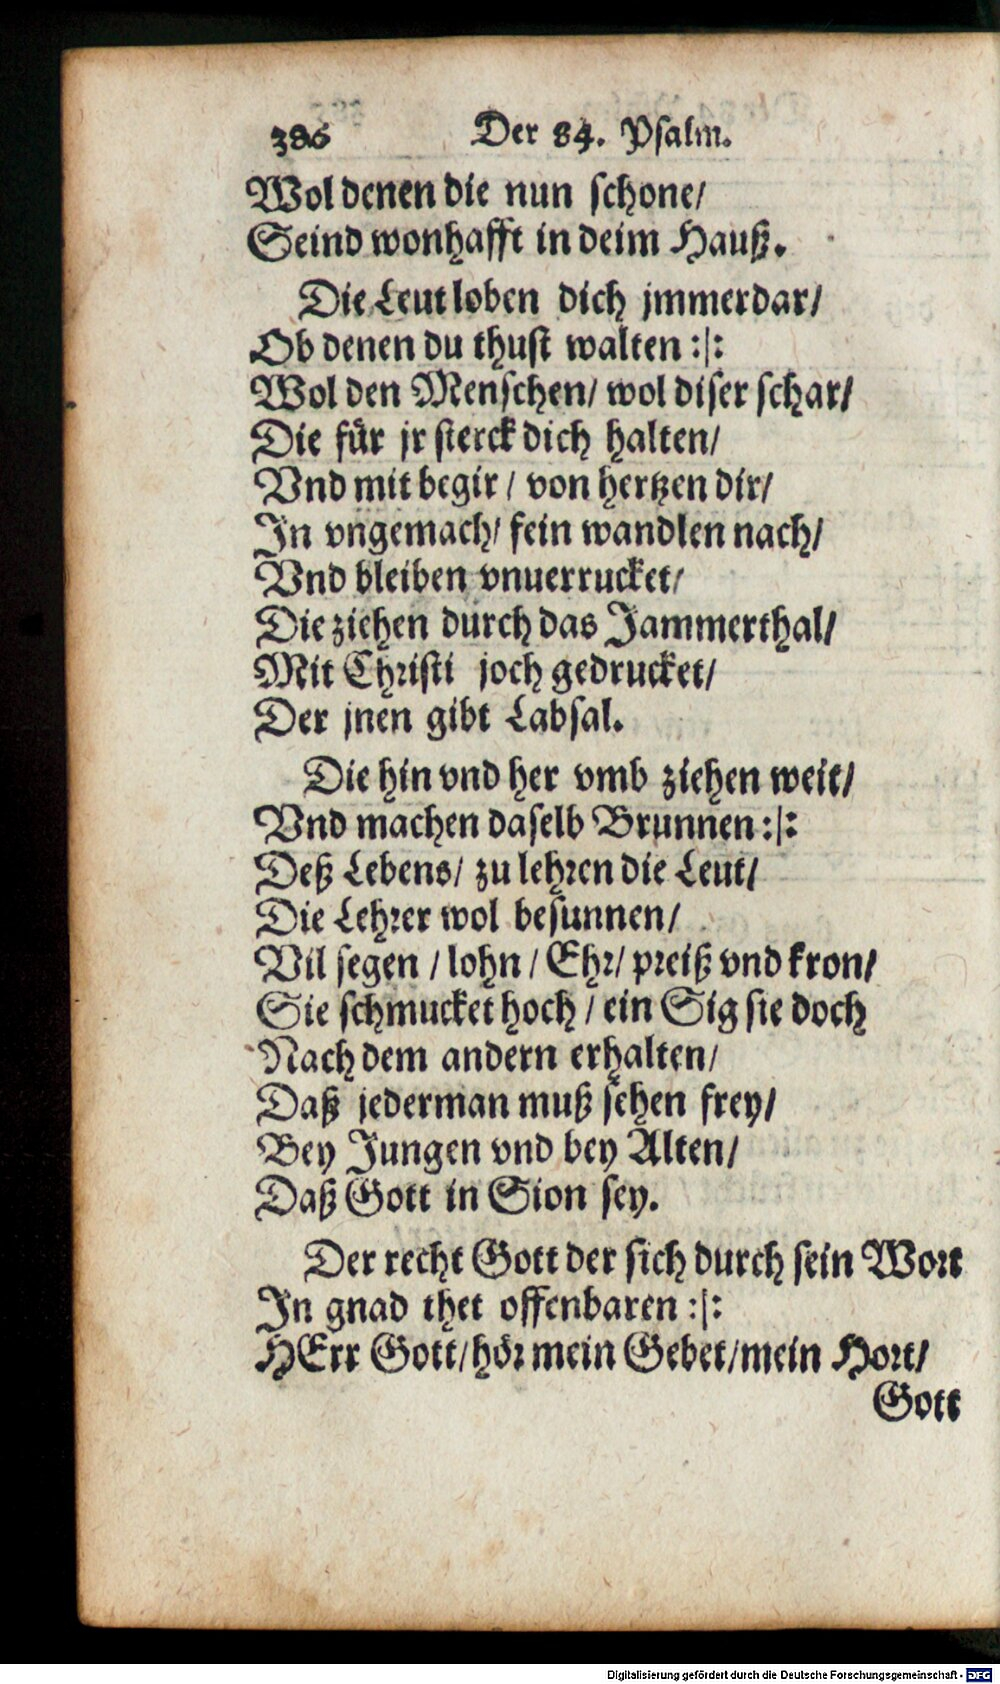 386 Der 84. Psalm.
Wol denen die nun schone/
Seind wonhafft in deim Hauß.
Die Leut loben dich jmmerdar/
Ob denen du thust walten :/:
Wol den Menschen/ wol diser schar/
Die für jr sterck dich halten/
Vnd mit begir / von hertzen dir/
In vngemach/ fein wandlen nach/
Vnd bleiben vnuerrucket/
Die ziehen durch das Jammerthal/
Mit Christi joch gedrucket/
Der jnen gibt Labsal.
Die hin vnd her vmb ziehen weit/
Vnd machen daselb Brunnen :/:
Deß Lebens/ zu lehren die Leut/
Die Lehrer wol besunnen/
Vil segen / lohn / Ehr/ preiß vnd kron/
Sie schmucket hoch / ein Sig sie doch
Nach dem andern erhalten/
Daß jederman muß sehen frey/
Bey Jungen vnd bey Alten/
Daß Gott in Sion sey.
Der recht Gott der sich durch sein Wort
In gnad thet offenbaren :/:
HErr Gott/ hör mein Gebet/ mein Hort/
Gott
Digitalisierung gefördert durch die Deutsche Forschungsgemeinschaft - DFG